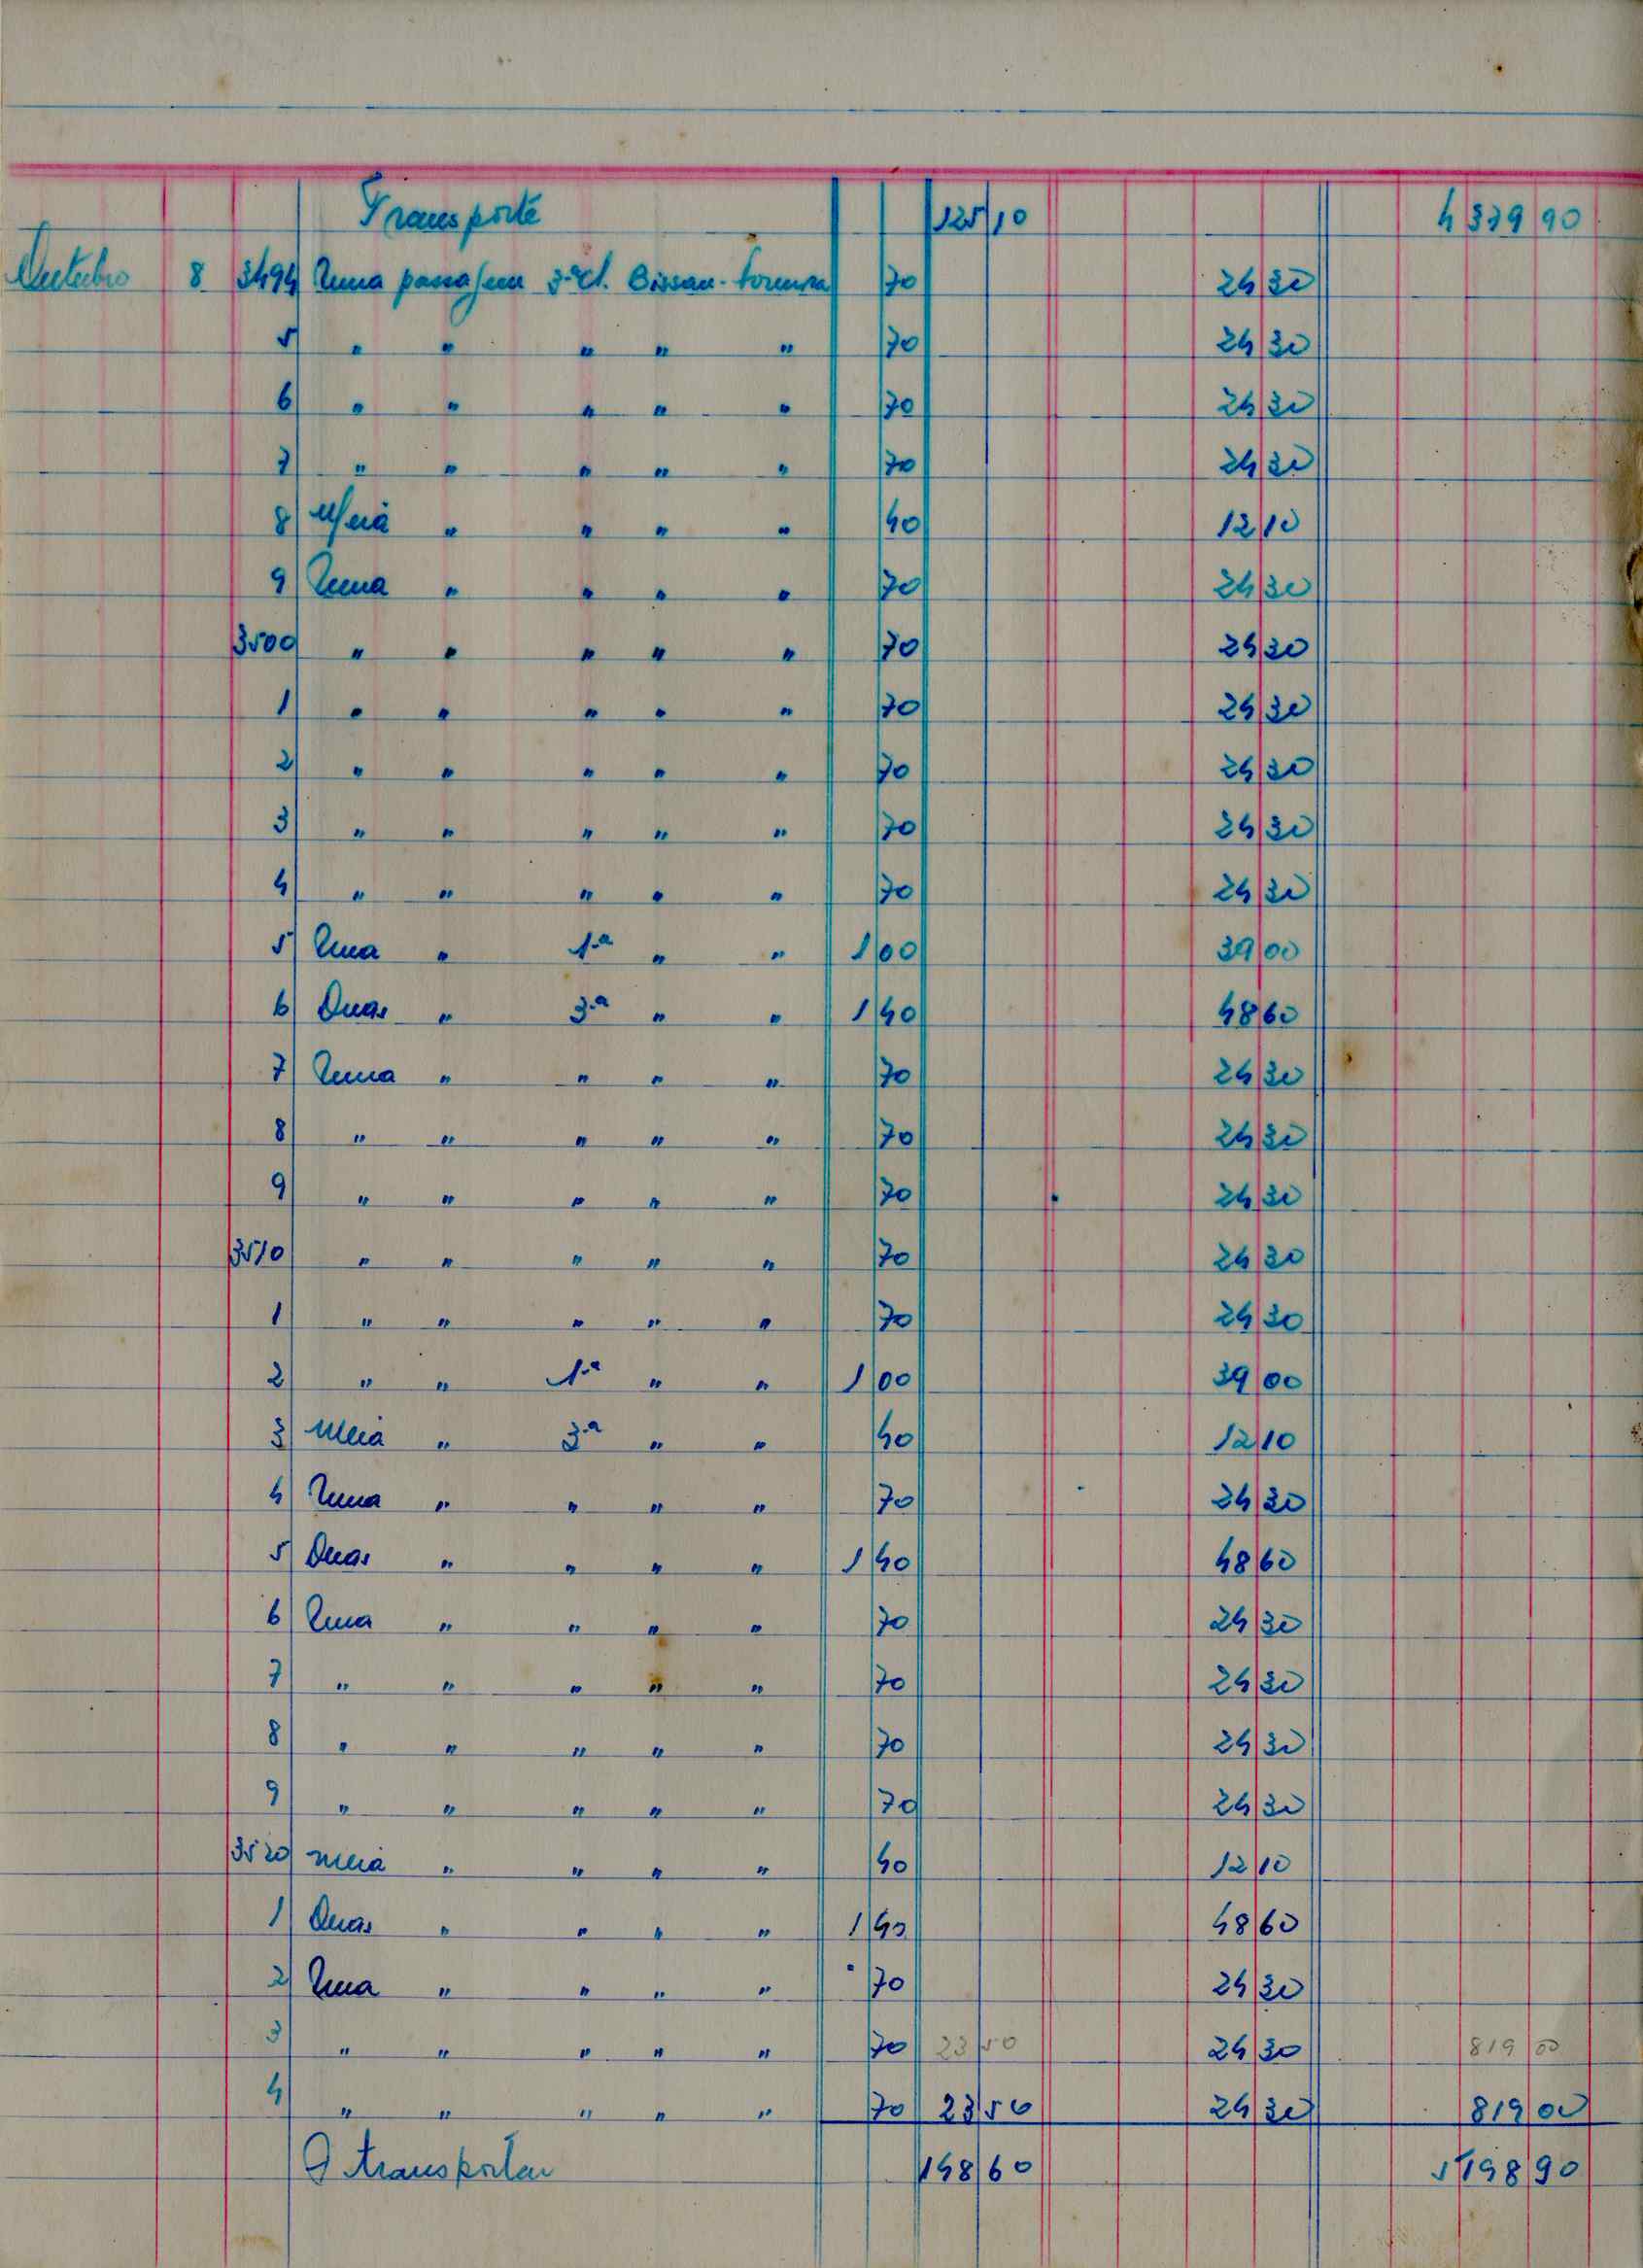 Transporte 125 10 4 379 90
Outubro 8 3494 Uma passajem 3.ª cl. Bissau-Formosa 70 24 30
5 " " " " " 70 24 30
6 " " " " " 70 24 30
7 " " " " " 70 24 30
8 Meia " " " " 40 12 10
9 Uma " " " " 70 24 30
3500 " " " " " 70 24 30
1 " " " " " 70 24 30
2 " " " " " 70 24 30
3 " " " " " 70 24 30
4 " " " " " 70 24 30
5 Uma " 1.ª " " 1 00 39 00
6 Duas " 3.ª " " 1 40 48 60
7 Uma " " " " 70 24 30
8 " " " " " 70 24 30
9 " " " " " 70 24 30
3510 " " " " " 70 24 30
1 " " " " " 70 24 30
2 " " 1.ª " " 1 00 39 00
3 Meia " 3.ª " " 40 12 10
4 Uma " " " " 70 24 30
5 Duas " " " " 1 40 48 60
6 Uma " " " " 70 24 30
7 " " " " " 70 24 30
8 " " " " " 70 24 30
9 " " " " " 70 24 30
3520 Meia " " " " 40 12 10
1 Duas " " " " 1 40 48 60
2 Uma " " " " 70 24 30
3 " " " " " 70 23 50 24 30 819 00
4 " " " " " 70 23 50 24 30 819 00
A transportar 148 60 5198 90